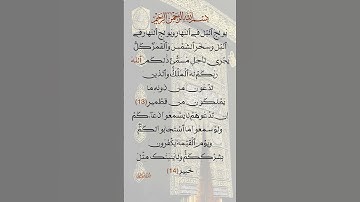 بسم الله الرحمن الرحيم
يولج اليل في النهار ويولج النهار في
اليل وسخر الشمس والقمر كل
يجري لأجل مسمى ذلكم الله
ربكم له الملك والذين
تدعون من دونه ما
يملكون من قطمير (13)
إن تدعوهم لا يسمعوا دعاءكم
ولو سمعوا ما استجابوا لكم
ويوم القيمة يكفرون
بشرككم ولا ينبئك مثل
خبير (14)